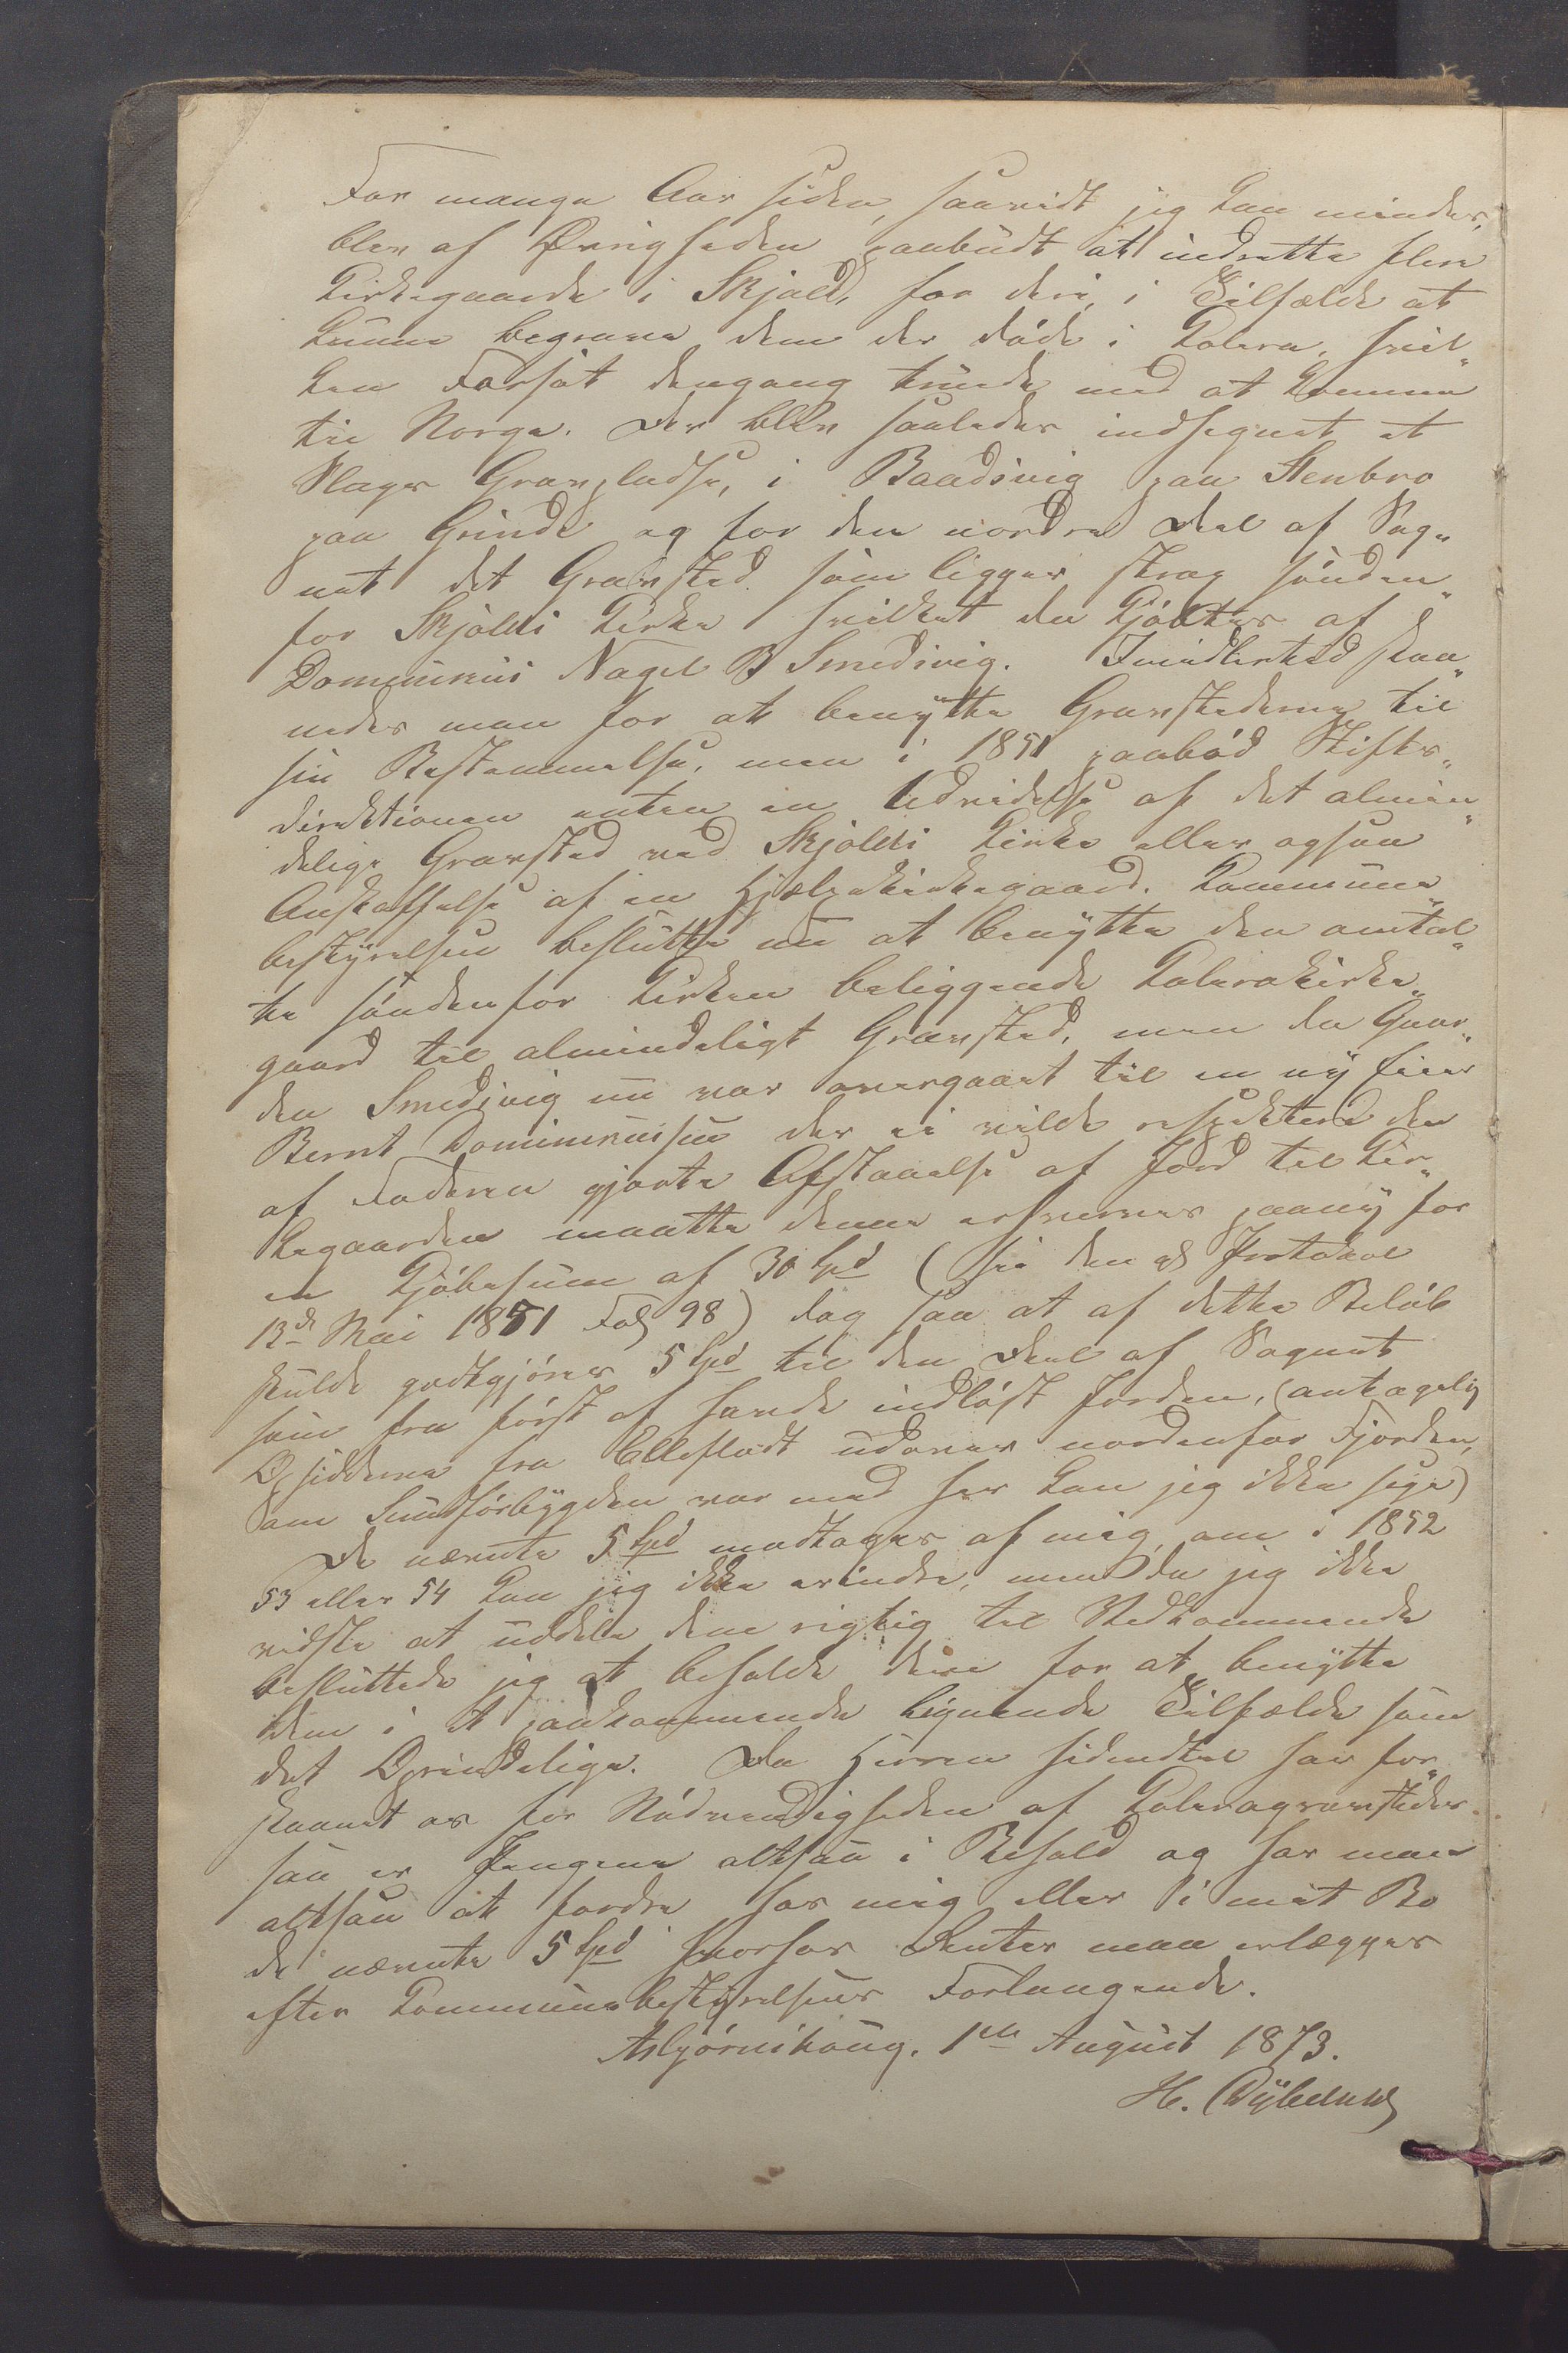 For mange Aar siden, saavidt jeg kan mindes,
blev af Øvrigheden paabudt at indrette flere
Kirkegaarde i Skjold, for deri, i Tilfælde at
kunne begrave dem der døde i Kolera, hvil„
ken Farsót dengang truede med at komme
til Norge. Der blev saaledes indhegnet et
Slags Gravpladse, i Baadsvig paa Stenbro
paa Grinde og for den nordre Deel af Sog„
net det Gravsted som ligger strax sónden„
for Skjolds Kirke hvilket da kjøbtes af
Dominicus Nagel B Smedsvig. Imidlertid skaa„
nedes man for at benytte Gravstederne til
sin Bestemmelse, men i 1851 paabød Stifts„
direktionen enten en Udvidelse af det almin„
delige Gravsted ved Skjolds Kirke eller ogsaa
Anskaffelse af en Hjælpekirkegaard. Kommune„
bestyrelsen beslutte nu at benytte den omtal„
te søndenfor Kirken beliggende Kolerakirke„
gaard til almindeligt Gravsted, men da Gaar„
den Smedsvig nu var overgaaet til en ny Eier
Bernt Dominicussen der ei vilde respektere den
af Faderen gjorte Afstaaelse af Jord til Kir„
kegaarden maatte denne erhverves paany for
en Kjøbesum af 30 Spd (sie den Protokol
13de Mai 1851 Fol 98) dog saa at af dette Beløb
skulde godtgjøres 5 Spd til den Deel af Sognet
som fra først af havde indløst Jorden, (antagelig
Opsidderne fra Ellefladt udover nordenfor Fjorden,
om Sundførbygden var med her kan jeg ikke sige)
De nævnte 5 Spd modtoges af mig, om i 1852
53 eller 54 kan jeg ikke erindre, men da jeg ikke
vidste at uddele dem rigtig til Vedkommende
besluttede jeg at beholde dem for at benytte
dem i et paakommende lignende Tilfælde som
det Oprindelige. Da Herren sidendtil har for„
skaanet os for Nødvendigheden af Koleragravsteder
saa er Pengene altsaa i Behold og har man
altsaa at fordre hos mig eller i mit Bo
de nævnte 5 Spd hvorfor Renter maa erlægges
efter Kommunebestyrelsens Forlangende.
Asbjørnshaug. 1ste August 1873.
H.